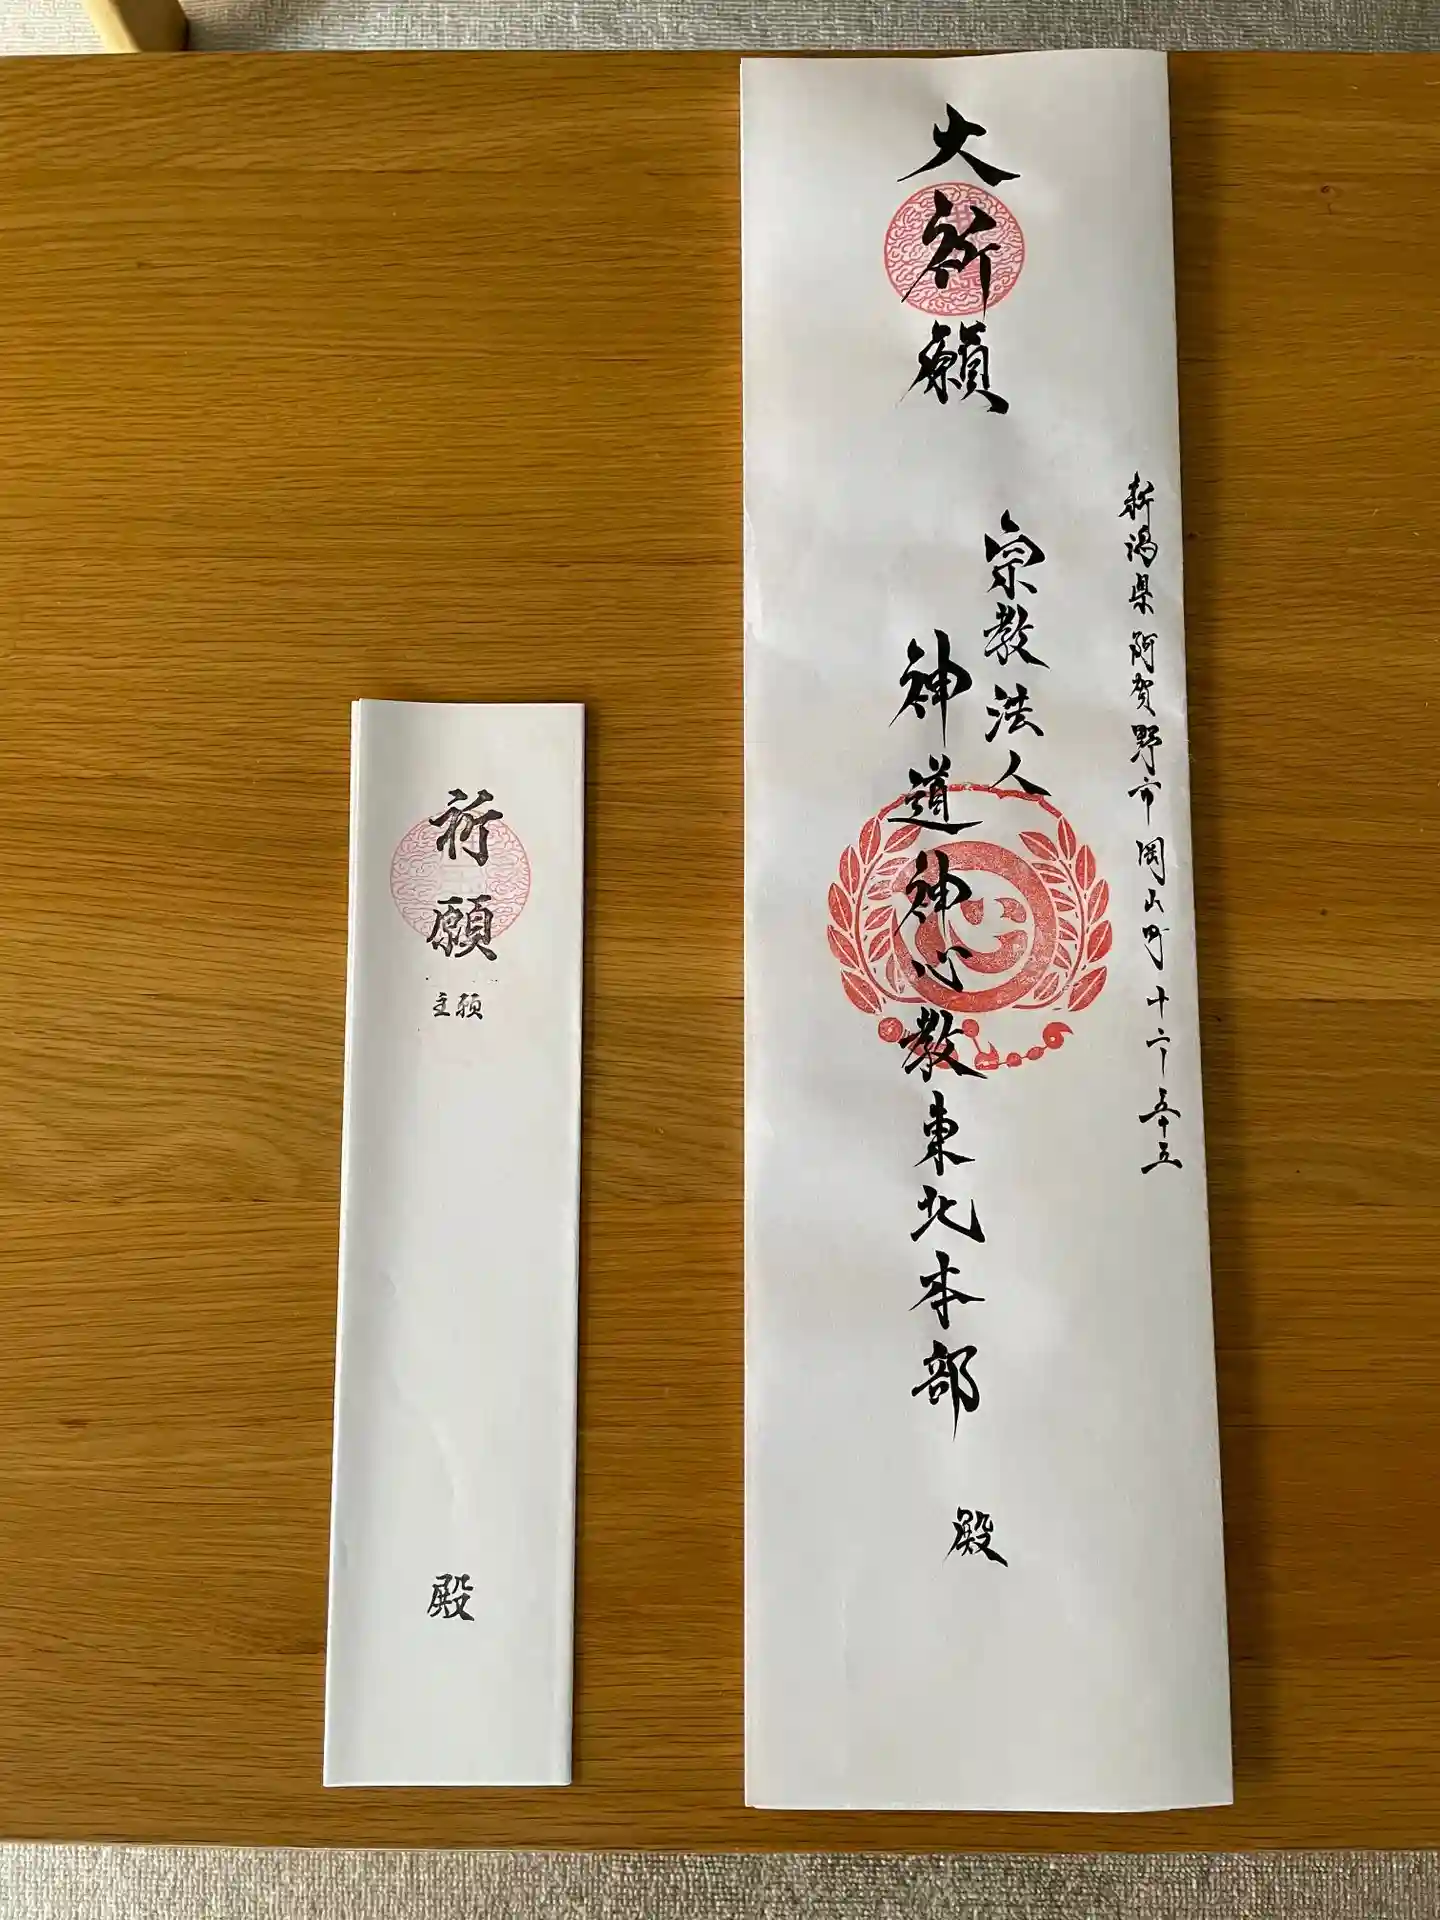 新潟県阿賀野市岡山町十六ー五十五
大祈願
宗教法人
神道神心教東北本部
殿
祈願
主願
殿